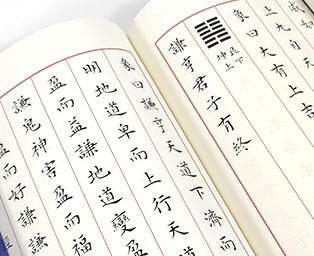 上九自天
象曰大有上吉
坤上
艮下
謙亨君子有終
彖曰謙亨天道下濟而
明地道卑而上行天道
盈而益謙地道變盈
謙鬼神害盈而福
盈而好謙謙